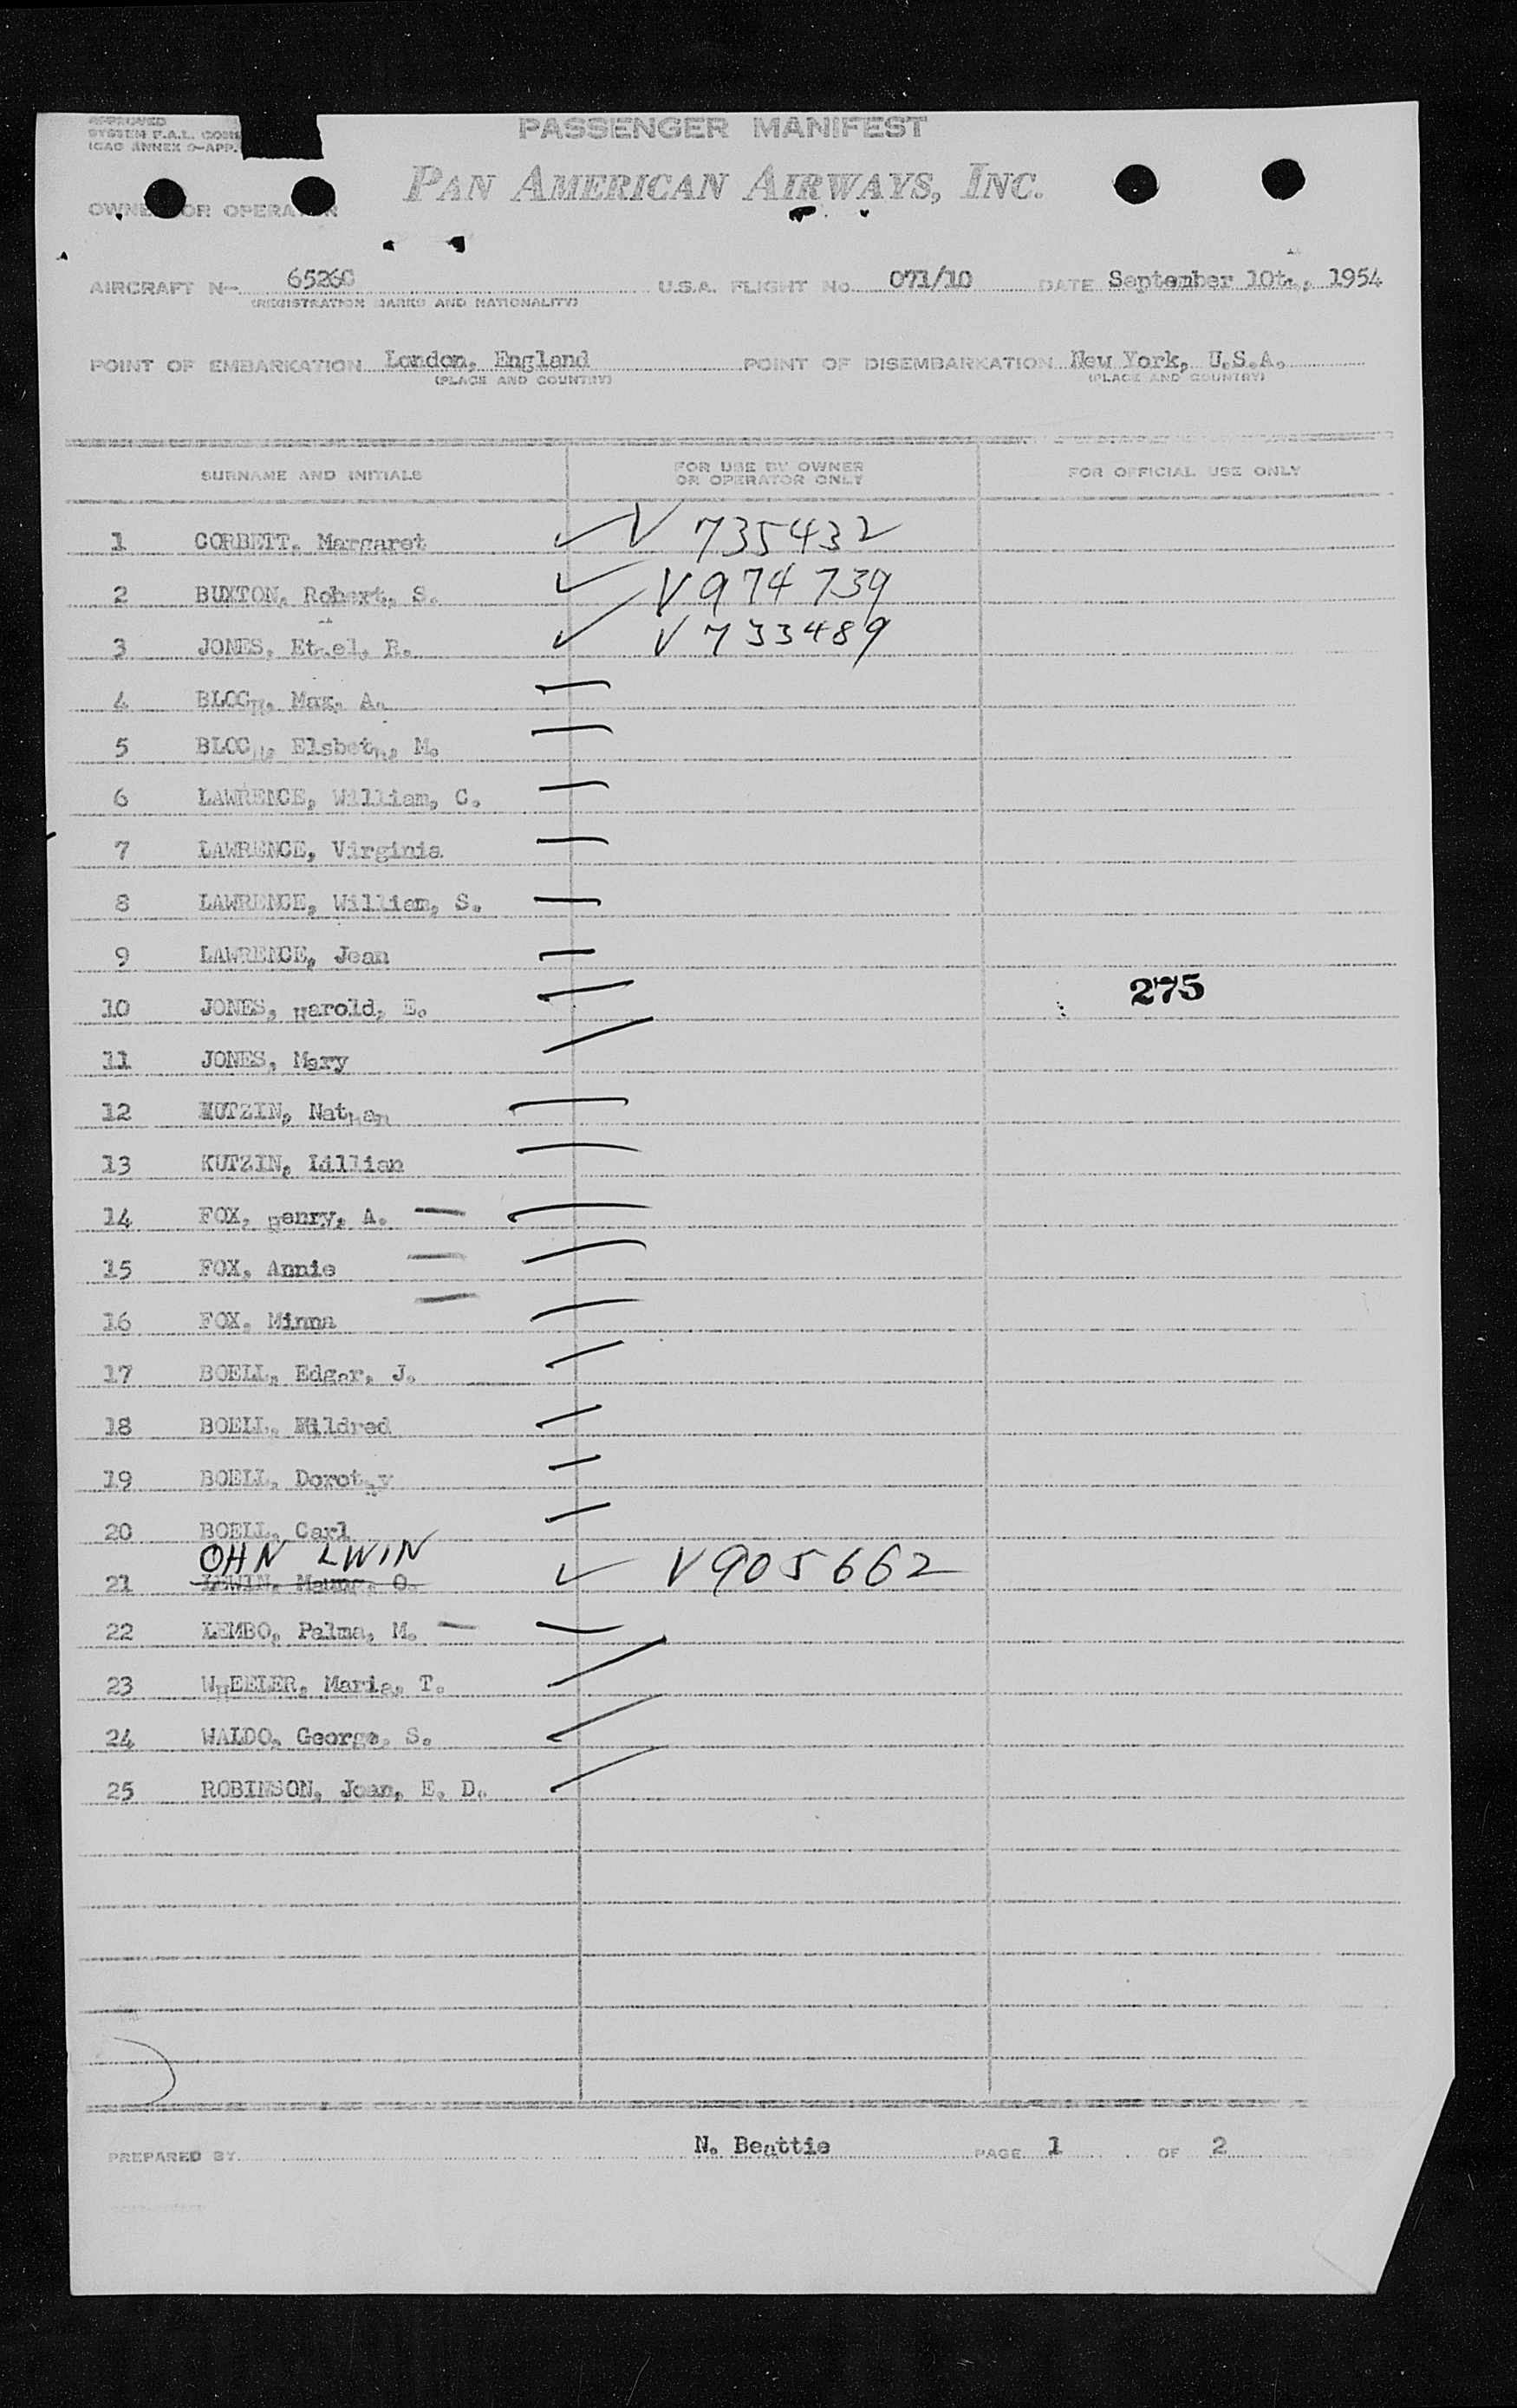 APPROVED
SYSTEM F.A.L. COM
ICAO ANNEX 9-APP.
PASSENGER MANIFEST
PAN AMERICAN AIRWAYS, INC.
OWNER OR OPERATOR
AIRCRAFT N- 65260 U.S.A. FLIGHT No. 071/10 DATE September 10th, 1954
(REGISTRATION MARKS AND NATIONALITY)
POINT OF EMBARKATION London, England POINT OF DISEMBARKATION New York, U.S.A.
(PLACE AND COUNTRY) (PLACE AND COUNTRY)
SURNAME AND INITIALS FOR USE BY OWNER OR OPERATOR ONLY FOR OFFICIAL USE ONLY
1 CORBETT, Margaret V 735432
2 BUXTON, Robert, S. V 974739
3 JONES, Ethel, R. V 733489
4 BLOCH, Max, A.
5 BLOCH, Elsbeth, M.
6 LAWRENCE, William, C.
7 LAWRENCE, Virginia
8 LAWRENCE, William, S.
9 LAWRENCE, Jean
275
10 JONES, Harold, E.
11 JONES, Mary
12 KUTZIN, Nathan
13 KUTZIN, Lillian
14 FOX, Henry, A.
15 FOX, Annie
16 FOX, Minna
17 BOELL, Edgar, J.
18 BOELL, Mildred
19 BOELL, Dorothy
20 BOELL, Carl
OHN LWIN
21 LEWIN, Maung, O. V905662
22 LEMBO, Palma, M.
23 WHEELER, Maria, T.
24 WALDO, George, S.
25 ROBINSON, Joan, E. D.
PREPARED BY N. Beattie PAGE 1 OF 2